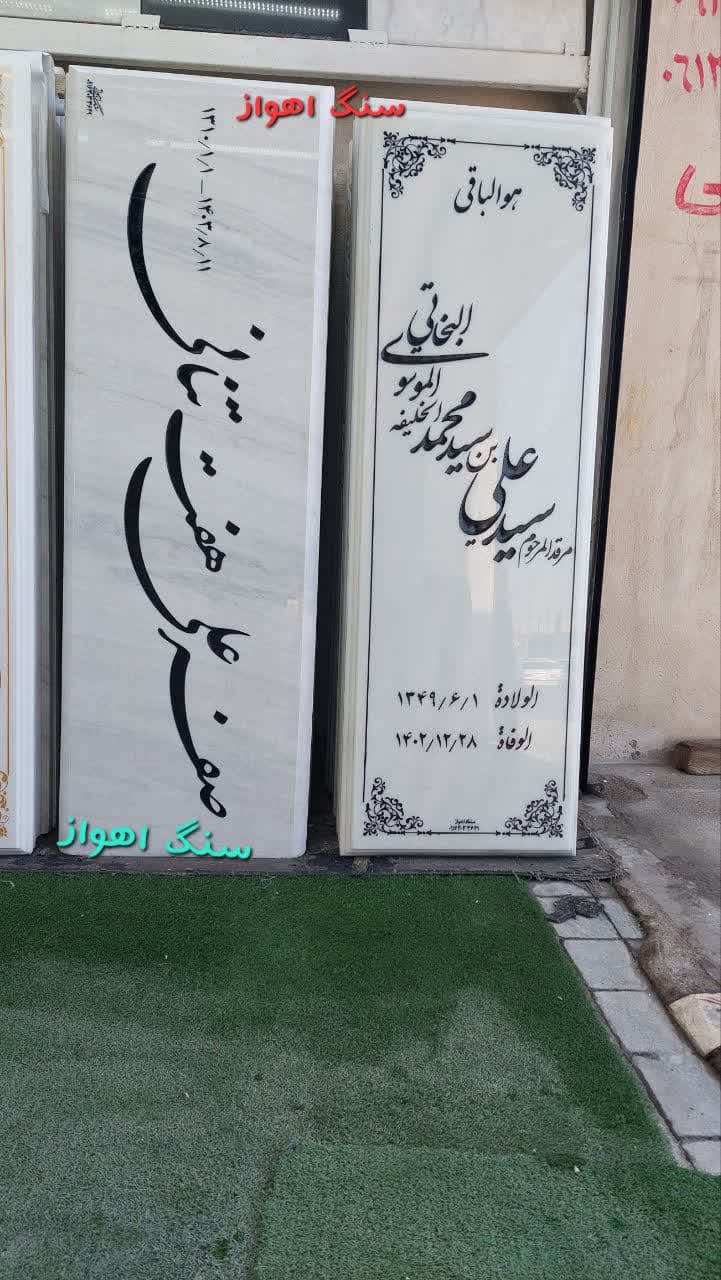 سنگ اهواز
۱۳۱۰/۱/۱ – ۱۴۰۳/۸/۱۱
صفر علی هفت تنانی
سنگ اهواز
هوالباقی
مرقد المرحوم
سید علی
بن سید محمد
الخلیفه
الموسوی
البخاتی
الولادة ۱۳۴۹/۶/۱
الوفاة ۱۴۰۲/۱۲/۲۸
سنگ اهواز